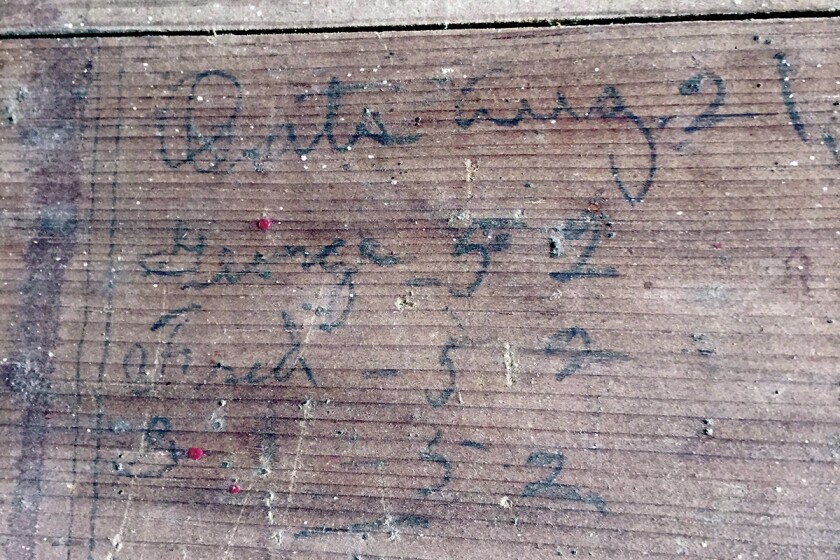 Oats Aug. 21
George - 52
Fred - 52
G - 52